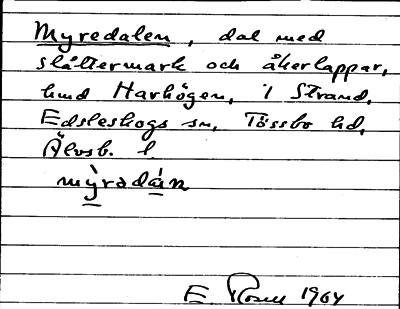 Myredalen, dal med
slåttermark och åkerlappar,
hmd Harhögen, i Strand,
Edsleskogs sn, Tössbo hd,
Älvsb. l.
mỳradán
E. Rosell 1964